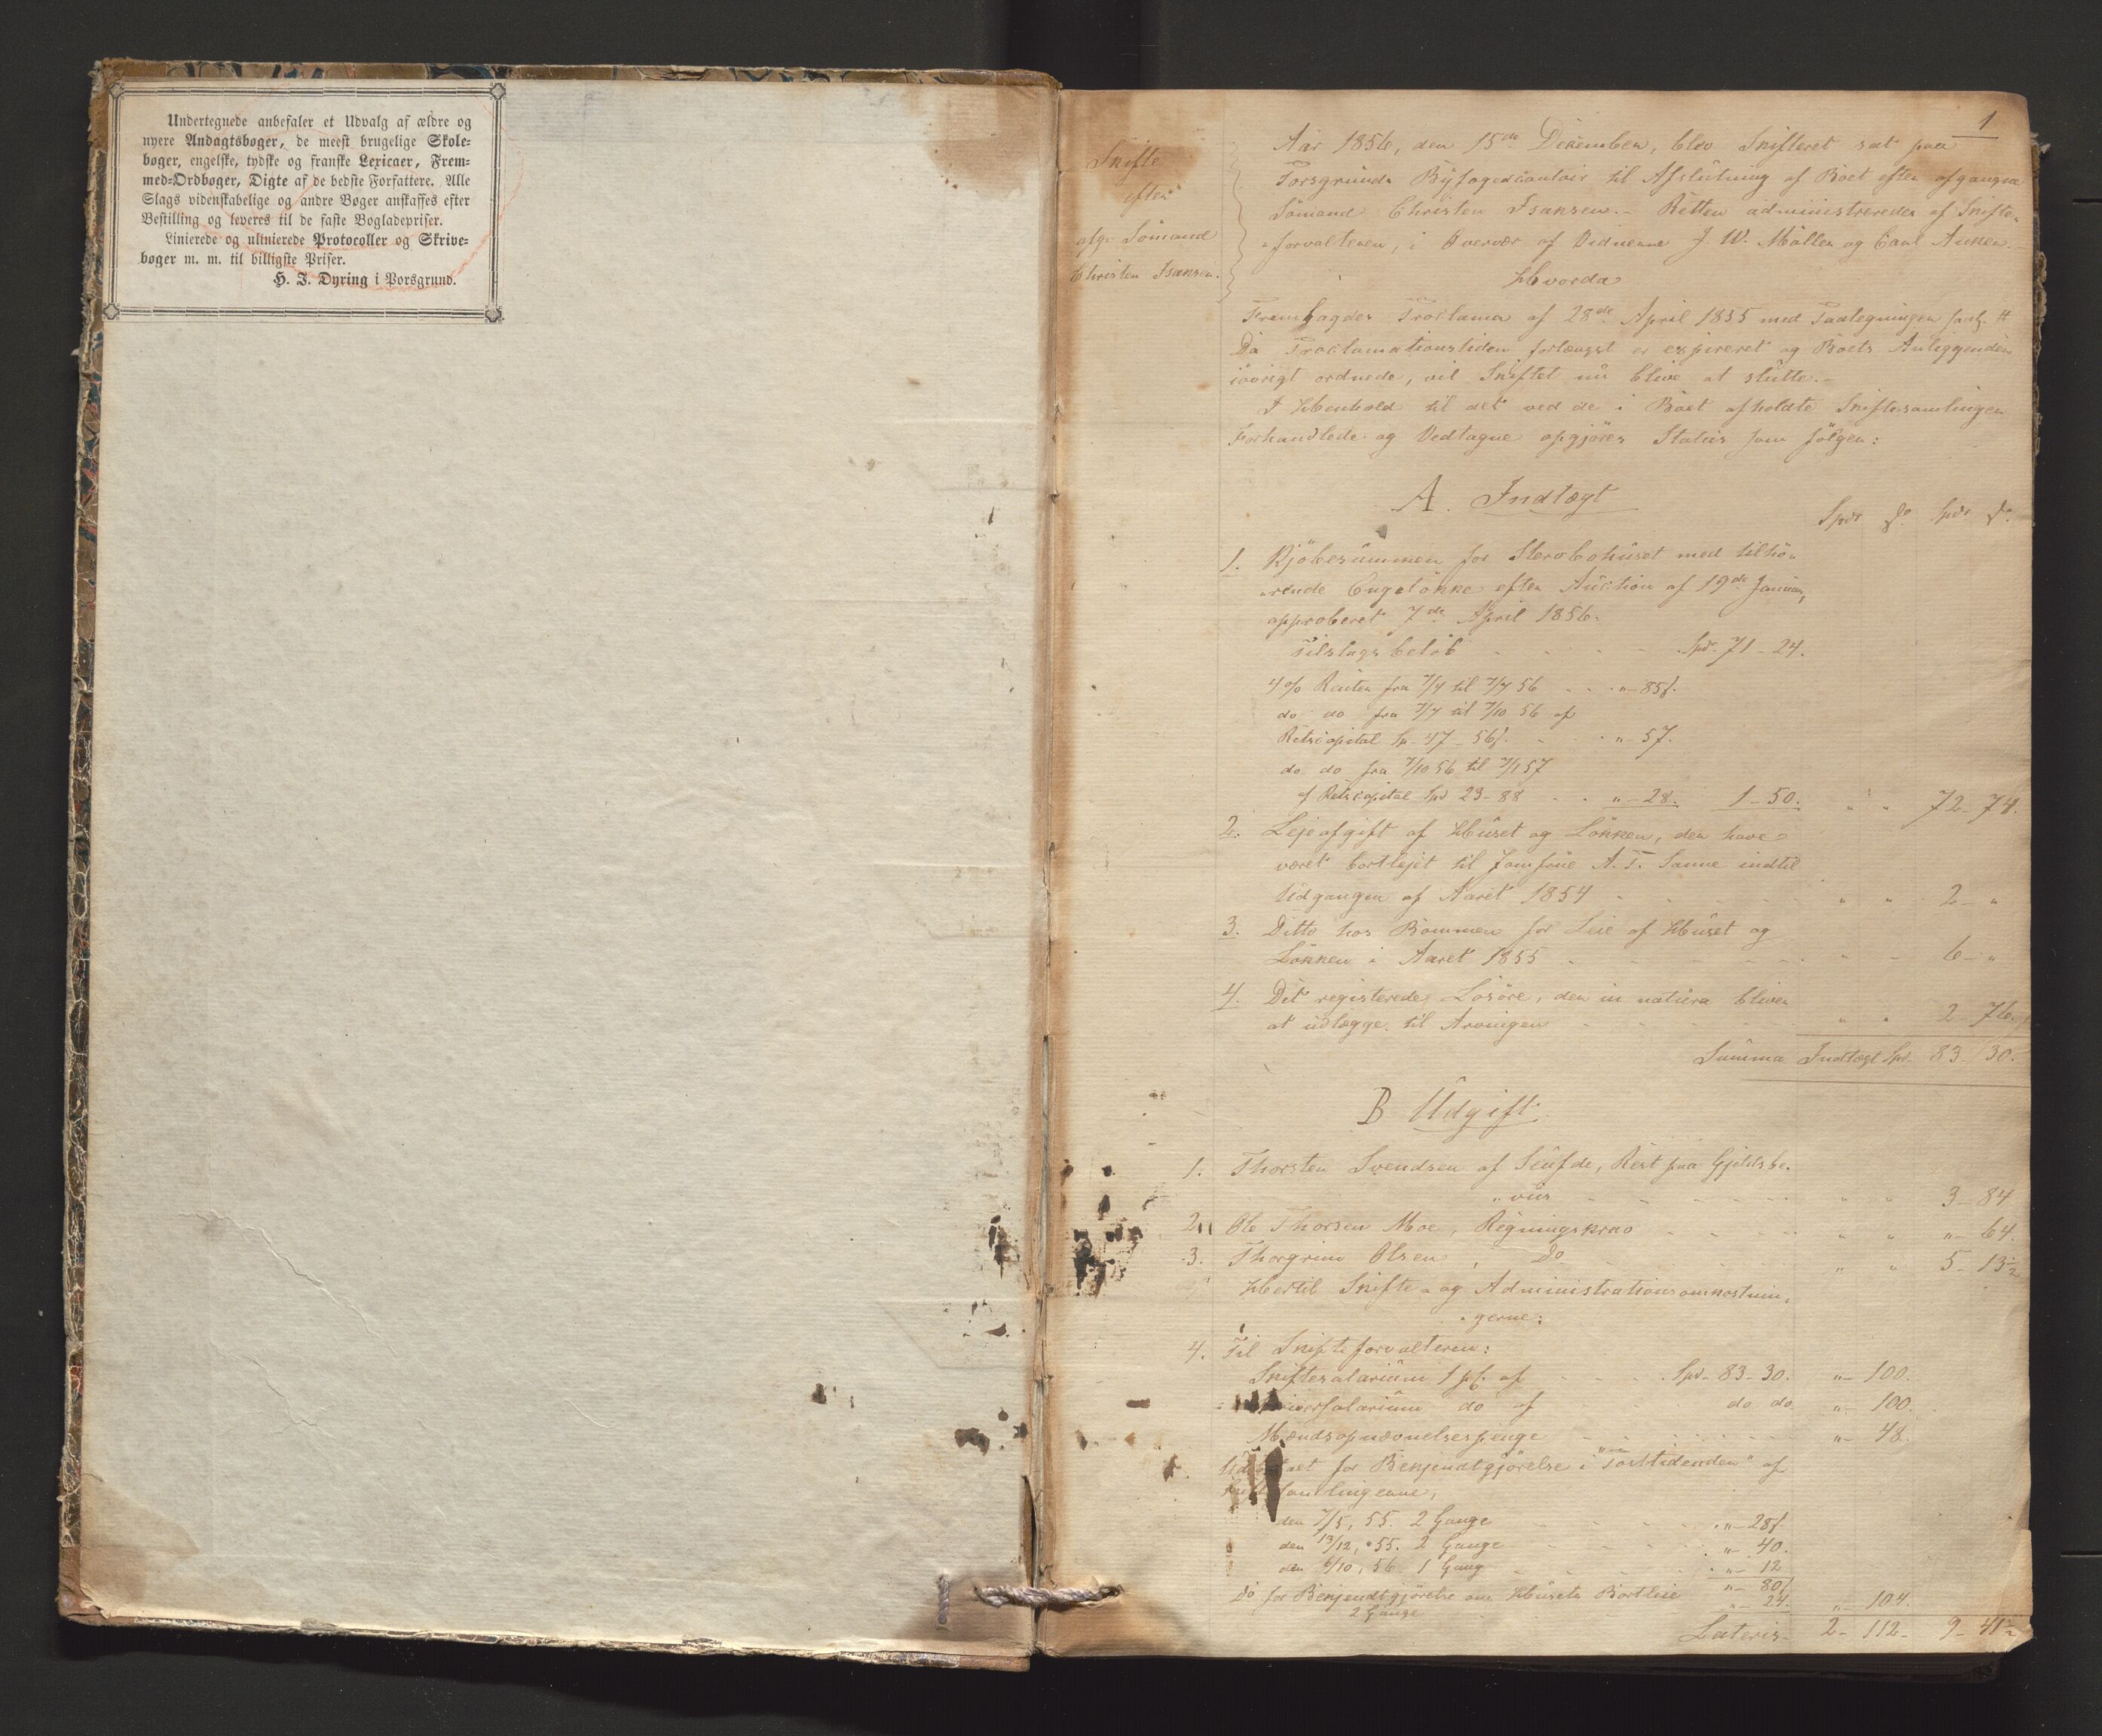 Undertegnede anbefaler et Udvalg af ældre og
nyere Andagtsbøger, de meest brugelige Skole-
bøger, engelske, tydske og franske Lexicaer, Frem-
med-Ordbøger, Digte af de bedste Forfattere. Alle
Slags videnskabelige og andre Bøger anskaffes efter
Bestilling og leveres til de faste Bogladepriser.
Linierede og ulinierede Protocoller og Skrive-
bøger m. m. til billigste Priser.
H. J. Dyring i Porsgrund.
1
Skifte
efter
afg. Sømand
Christen Isaksen.
Aar 1856, den 15de December, blev Skifteret sat paa
Porsgrunds Byfogedcontoir til Afslutning af Boet efter afgangne
Sømand Christen Isaksen. - Retten administreredes af Skifte-
forvalteren, i Overvær af Vidnerne J. W. Møller og Carl
Hvorda
Fremlagdes Proclama af 28de April 1855 med Paategninger
Da Proclamationstiden forlængst er expireret og Boets Anliggender
iøvrigt ordnede, vil Skiftet nu blive at slutte. -
I Henhold til det ved de i Boet afholdte Skiftesamlinger
Forhandlede og Vedtagne opgjøres Status som følger:
A. Indtægt
Spdr ß. Spdr ß.
1. Kjøbesummen for Stervbohuset med tilhø-
rende Engeløkke efter Auction af 19de Januar,
approberet 7de April 1856.
Tilslagsbeløb - - - Spd. 71 - 24.
4% Renter fra 7/4 til 7/7 56 - - " - 85ß.
do do fra 7/7 til 7/10 56 af
Restcapital Sp. 47 - 56ß. - - " - 57.
do do fra 7/10 56 til 7/1 57
af Restcapital Spd 23 - 88 - - " - 28. 1 - 50. " " 72 - 74.
2. Lejeafgift af Huset og Løkken, der have
været bortlejet til Jomfrue A. T. Sanne indtil
Udgangen af Aaret 1854 - - - " " 2 - "
3. Ditto hos Bommen for Leie af Huset og
Løkken i Aaret 1855 - - - " - 6 - "
4. Det registerede Løsøre, der in natura bliver
at udlægge til Arvingen - - - " " 2 - 76.
Summa Indtægt Spd. 83 - 30.
B Udgift.
1. Thorsten Svendsen af, Rest paa Gjeldsbe-
viis - - - " " 3 - 84
2. Ole Thorsen Moe, Regningskrav - - - " " " - 64.
3. Thorgrim Olsen, Do - - - " " 5 - 13½
Hertil Skifte- og Administrationsomkostnin-
gerne:
4. Til Skifteforvalteren:
Skiftesalarium 1 pCt. af - - - Spd - 83 - 30. " - 100.
salarium do af - - do do " - 100.
Mændsopnævnelsespenge - - - " - 48.
for Bekjendtgjørelse i "Posttidenden" af
samlingerne,
den 7/5, 55. 2 Gange - - - " - 28ß
den 13/12, 55. 2 Gange - - - " - 40.
den 6/10, 56. 1 Gang - - - " - 12
" - 80ß
Do for Bekjendtgjørelse om Husets Bortleie
2 Gange " - 24. " - 104.
Lateris - 2 - 112 - 9 - 41½